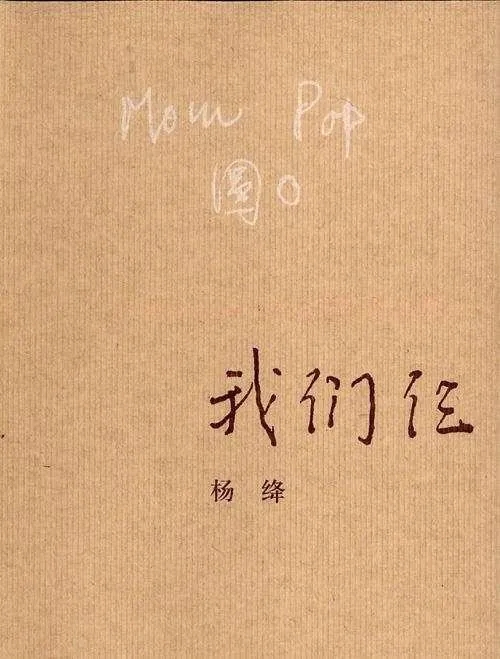 Mom Pop
圆0
我们仨
杨绛